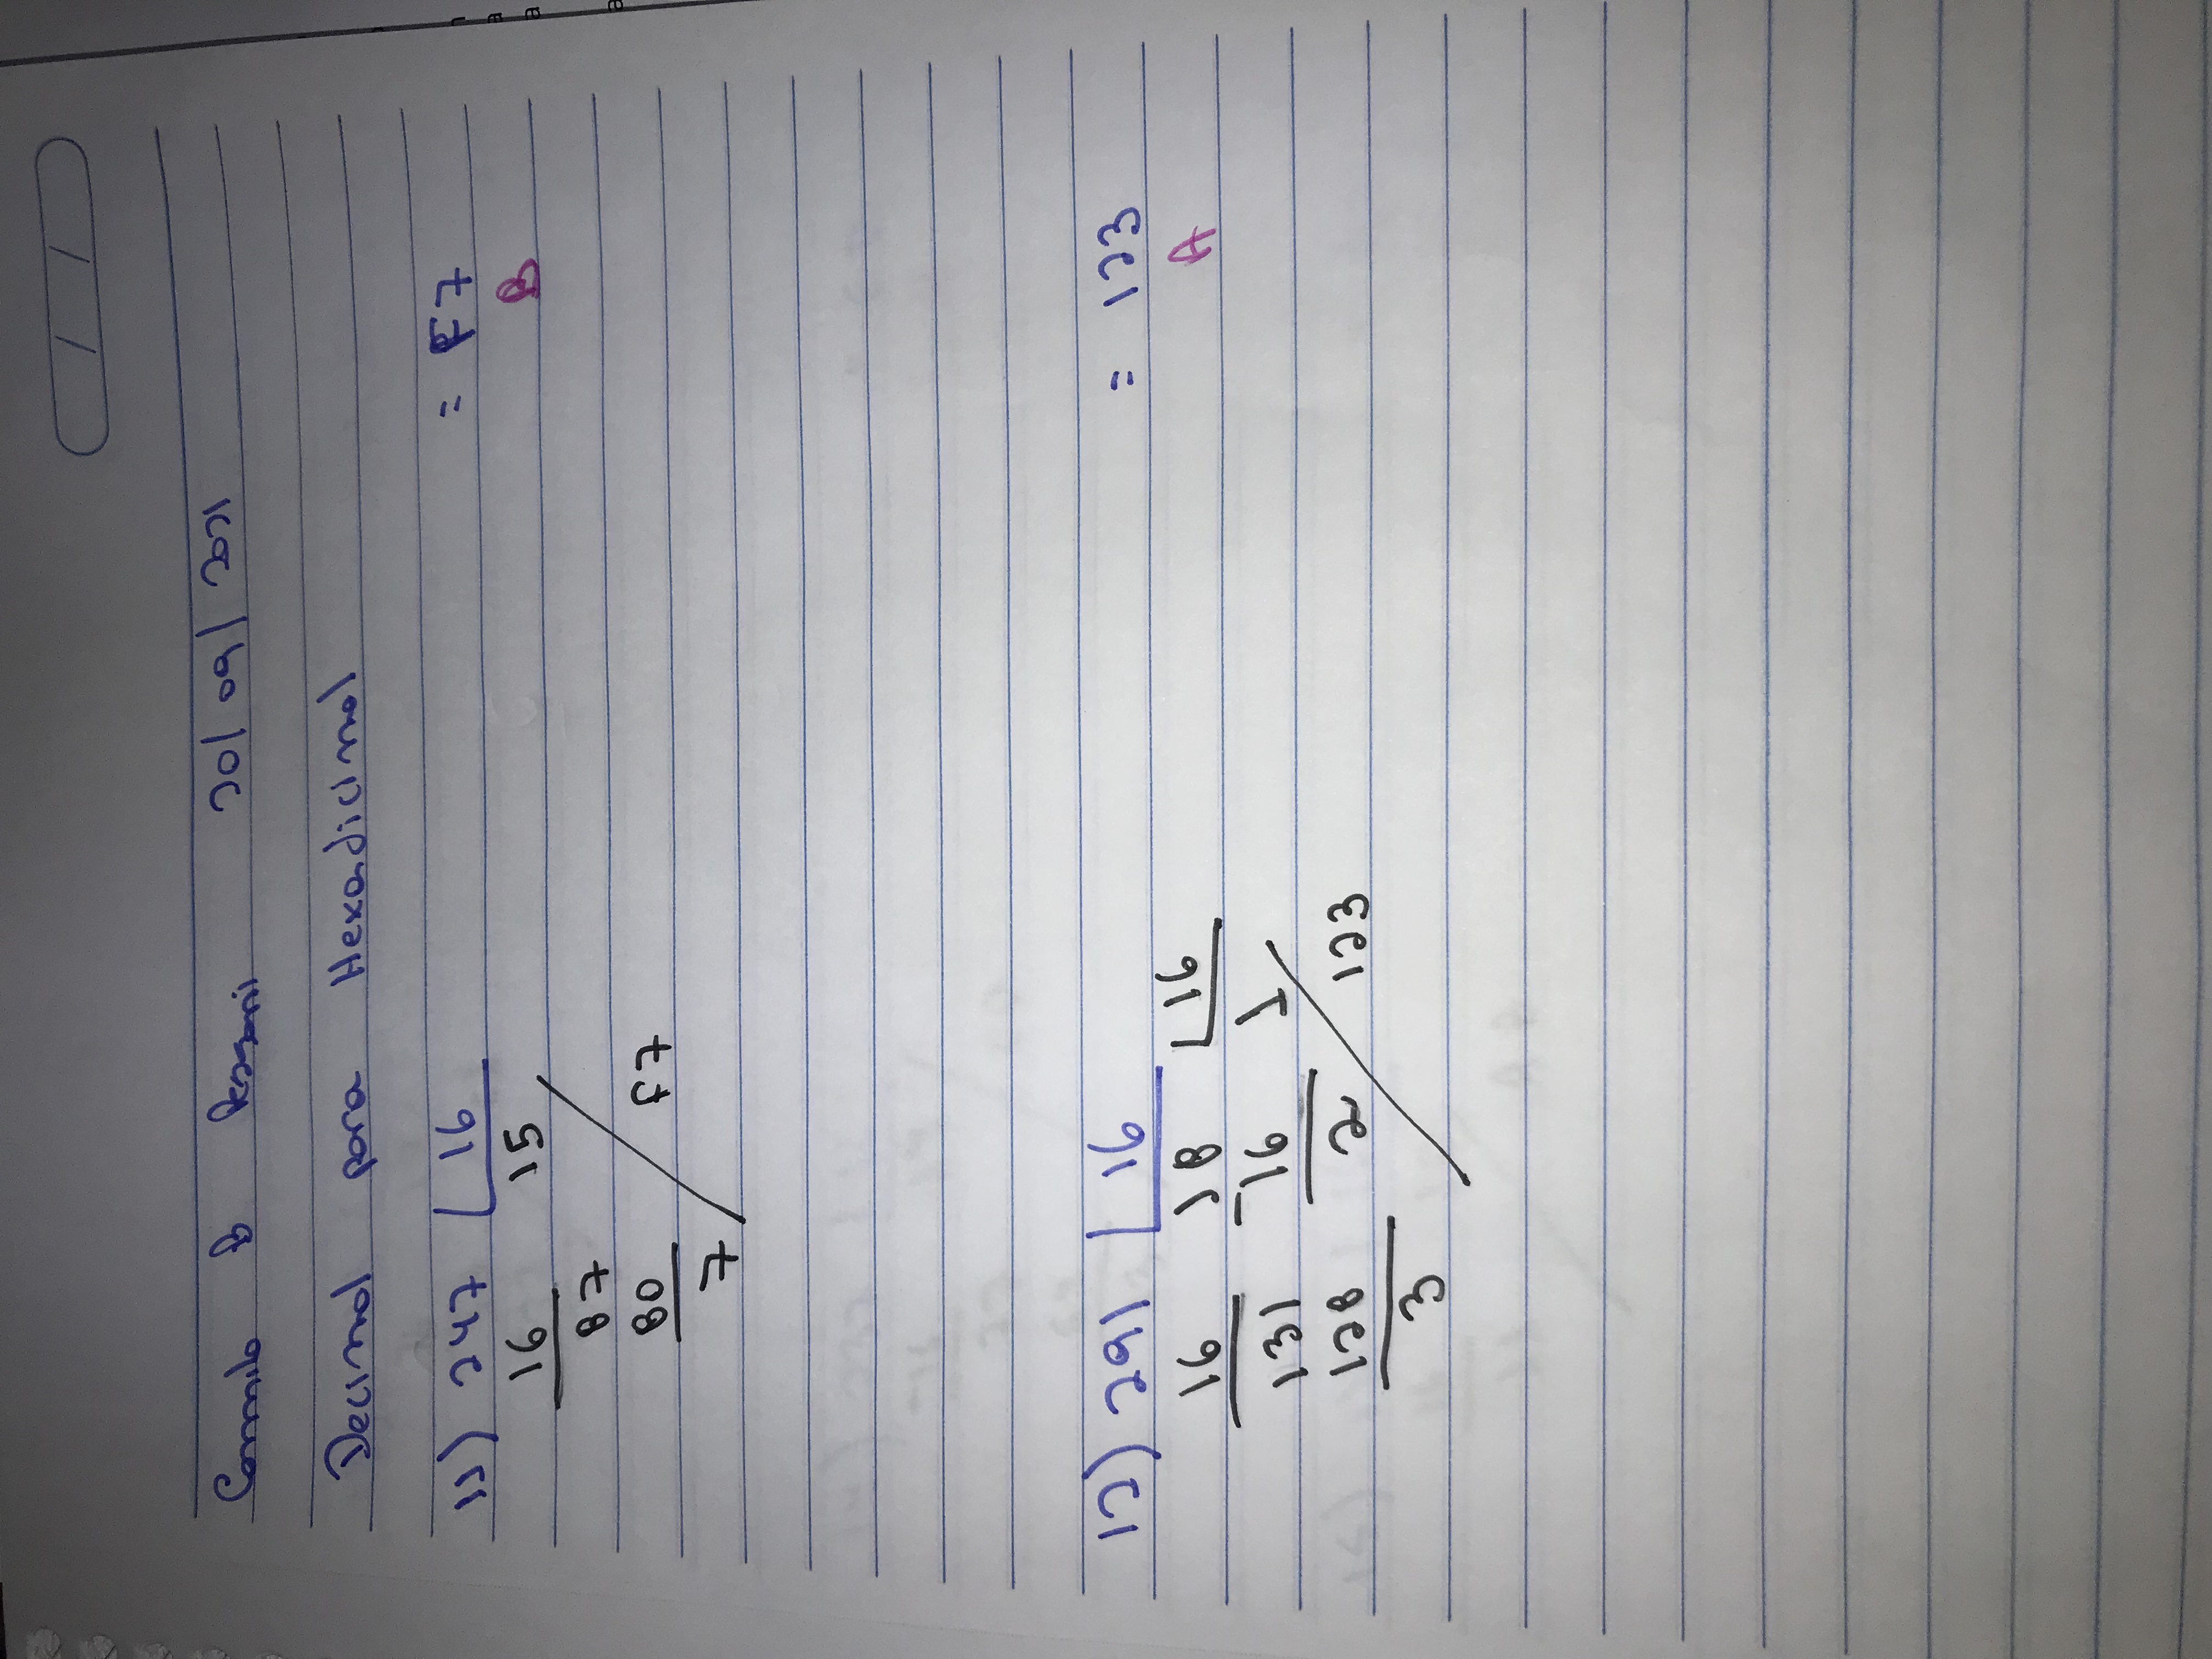 B 20/09/2021
Decimal para Hexadicimal
11) 247 16 = F7
16 15 B
87
80 F7
7
12) 291 16 = 123
16 18 16 A
131 16 1
128 2 123
3